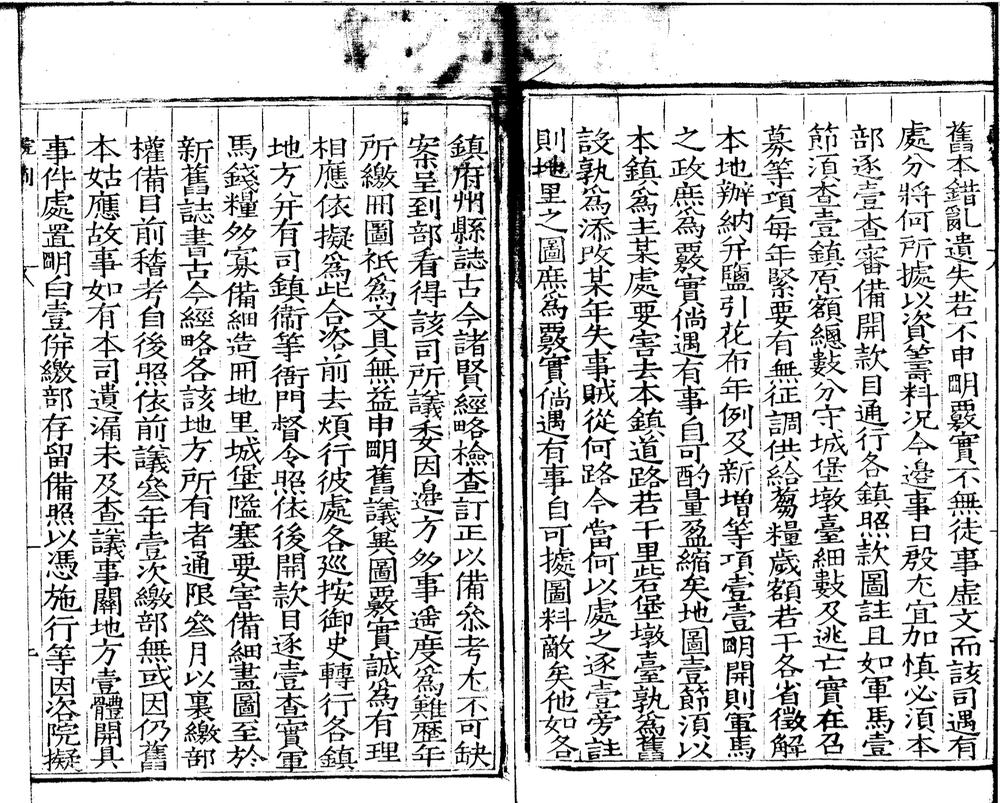 舊本錯亂遺失若不申明覈實不無徒事虛文而該司遇有
處分將何所據以資籌料况今邊事日殷尤宜加慎必須本
部逐壹查審備開款目通行各鎮照款圖註且如軍馬壹
節須查壹鎮原額緫數分守城堡墩臺細數及逃亡實在召
募等項每年緊要有無征調供給芻糧歲額若干各省徵解
本地辦納并鹽引花布年例及新增等項壹壹明開則軍馬
之政庶爲覈實倘遇有事自可酌量盈縮矣地圖壹節須以
本鎮爲主某處要害去本鎮道路若干里砦堡墩臺孰爲舊
設孰爲添改某年失事賊從何路今當何以處之逐壹旁註
則地里之圖庶爲覈實倘遇有事自可據圖料敵矣他如各
鎮府州縣誌古今諸賢經略檢查訂正以備叅考尤不可缺
案呈到部看得該司所議委因邊方多事遥度爲難歷年
所繳冊圖祇爲文具無益申明舊議異圖覈實誠爲有理
相應依擬爲此合咨前去煩行彼處各巡按御史轉行各鎮
地方并有司鎮衞等衙門督令照依後開款目逐壹查實軍
馬錢糧多寡備細造冊地里城堡隘塞要害備細畫圖至於
新舊誌書古今經略各該地方所有者通限叅月以裏繳部
權備目前稽考自後照依前議叅年壹次繳部無或因仍舊
本姑應故事如有本司遺漏未及查議事關地方壹體開具
事件處置明白壹併繳部存留備照以憑施行等因咨院擬